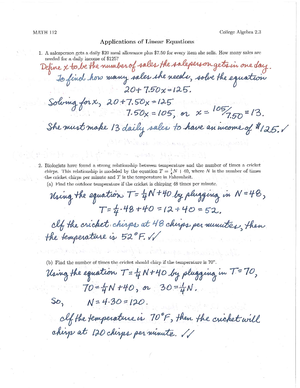 MATH 112 College Algebra 2.3
Applications of Linear Equations
1. A salesperson gets a daily $20 meal allowance plus $7.50 for every item she sells. How many sales are
needed for a daily income of $125?
Define x to be the number of sales the salesperson gets in one day.
To find how many sales she needs, solve the equation
20+7.50x=125.
Solving for x, 20+7.50x=125
7.50x=105, or x = 105/7.50 = 13.
She must make 13 daily sales to have an income of $125. ✓
2. Biologists have found a strong relationship between temperature and the number of times a cricket
chirps. This relationship is modeled by the equation T = ¼N + 40, where N is the number of times
the cricket chirps per minute and T is the temperature in Fahrenheit.
(a) Find the outdoor temperature if the cricket is chirping 48 times per minute.
Using the equation T=¼N+40 by plugging in N=48,
T=¼·48+40=12+40=52.
If the cricket chirps at 48 chirps per minutes, then
the temperature is 52°F. ✓✓
(b) Find the number of times the cricket should chirp if the temperature is 70°.
Using the equation T=¼N+40 by plugging in T=70,
70=¼N+40, or 30=¼N.
So, N=4·30=120.
If the temperature is 70°F, then the cricket will
chirp at 120 chirps per minute. ✓✓